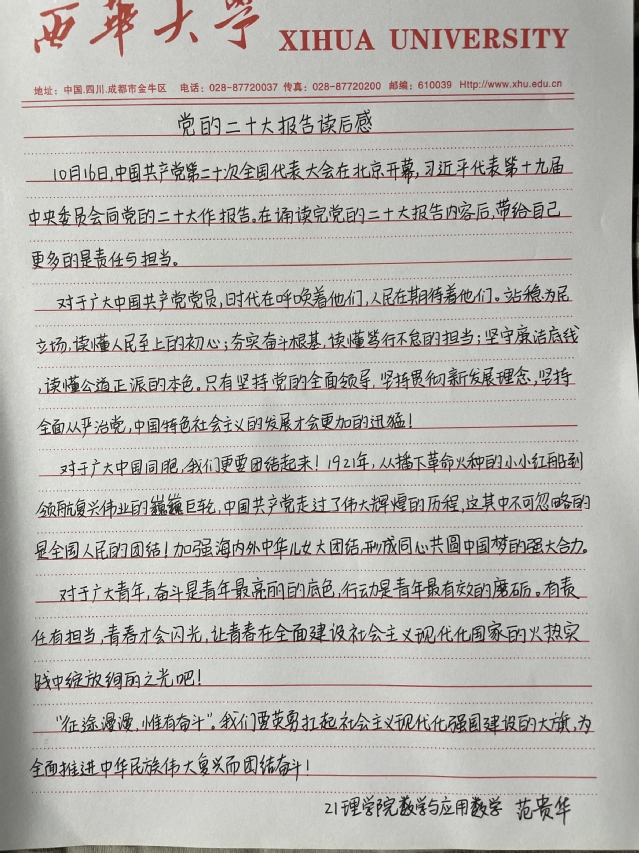 西华大学 XIHUA UNIVERSITY
地址：中国.四川.成都市金牛区 电话：028-87720037 传真：028-87720200 邮编：610039 Http://www.xhu.edu.cn
党的二十大报告读后感
10月16日,中国共产党第二十次全国代表大会在北京开幕,习近平代表第十九届
中央委员会向党的二十大作报告。在诵读完党的二十大报告内容后,带给自己
更多的是责任与担当。
对于广大中国共产党党员,时代在呼唤着他们,人民在期待着他们。站稳为民
立场,读懂人民至上的初心；夯实奋斗根基,读懂笃行不怠的担当；坚守廉洁底线
,读懂公道正派的本色。只有坚持党的全面领导,坚持贯彻新发展理念,坚持
全面从严治党,中国特色社会主义的发展才会更加的迅猛！
对于广大中国同胞,我们更要团结起来！1921年,从播下革命火种的小小红船到
领航复兴伟业的巍巍巨轮,中国共产党走过了伟大辉煌的历程,这其中不可忽略的
是全国人民的团结！加强海内外中华儿女大团结,形成同心共圆中国梦的强大合力。
对于广大青年,奋斗是青年最亮丽的底色,行动是青年最有效的磨砺。有责
任有担当,青春才会闪光,让青春在全面建设社会主义现代化国家的火热实
践中绽放绚丽之光吧！
“征途漫漫,惟有奋斗”。我们要英勇扛起社会主义现代化强国建设的大旗,为
全面推进中华民族伟大复兴而团结奋斗！
21理学院数学与应用数学 范贵华